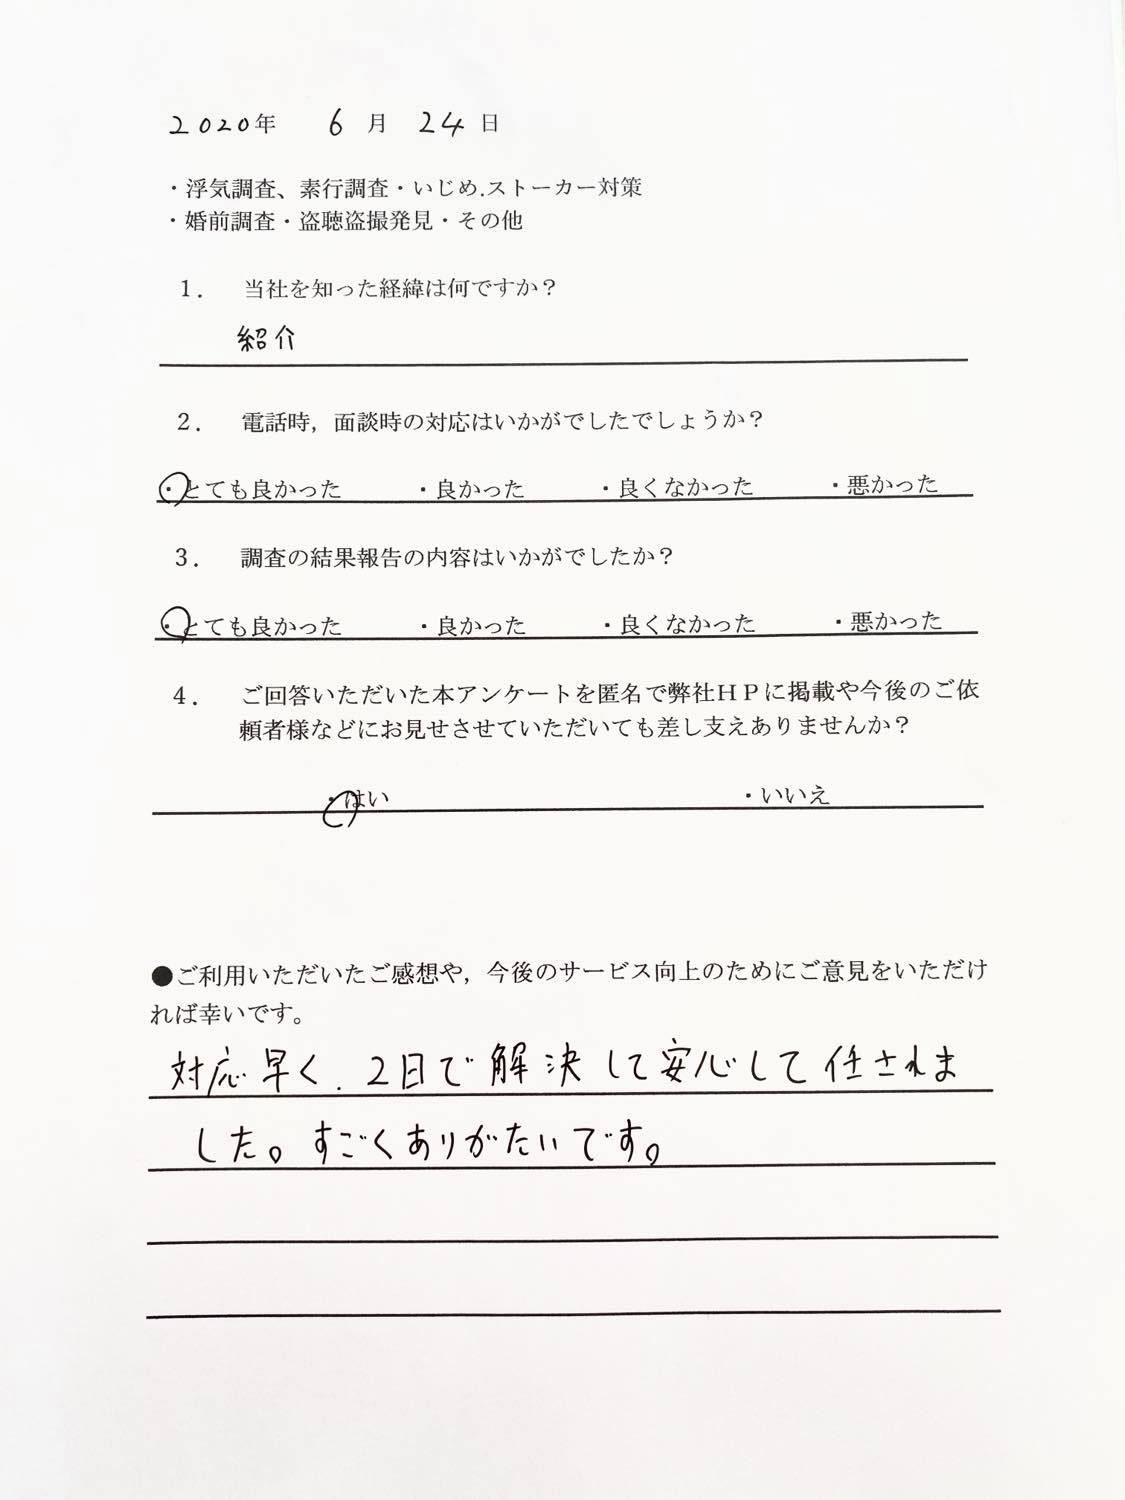 2020年 6月 24日
・浮気調査、素行調査・いじめ.ストーカー対策
・婚前調査・盗聴盗撮発見・その他
1. 当社を知った経緯は何ですか？
紹介
2. 電話時,面談時の対応はいかがでしたでしょうか？
・とても良かった ・良かった ・良くなかった ・悪かった
3. 調査の結果報告の内容はいかがでしたか？
・とても良かった ・良かった ・良くなかった ・悪かった
4. ご回答いただいた本アンケートを匿名で弊社HPに掲載や今後のご依
頼者様などにお見せさせていただいても差し支えありませんか？
・はい ・いいえ
●ご利用いただいたご感想や,今後のサービス向上のためにご意見をいただけ
れば幸いです。
対応早く、2日で解決して安心して任されま
した。すごくありがたいです。